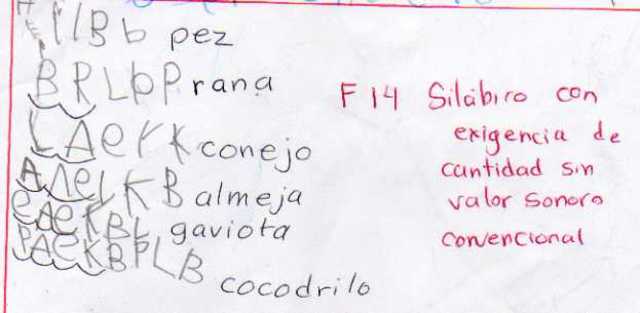 pez
BPLbP rana
LAerK conejo
AAerKB almeja
eAeKBL gaviota
PAeKBPLB
cocodrilo
F 14 Silábiro con
exigencia de
cantidad sin
valor sonoro
convencional